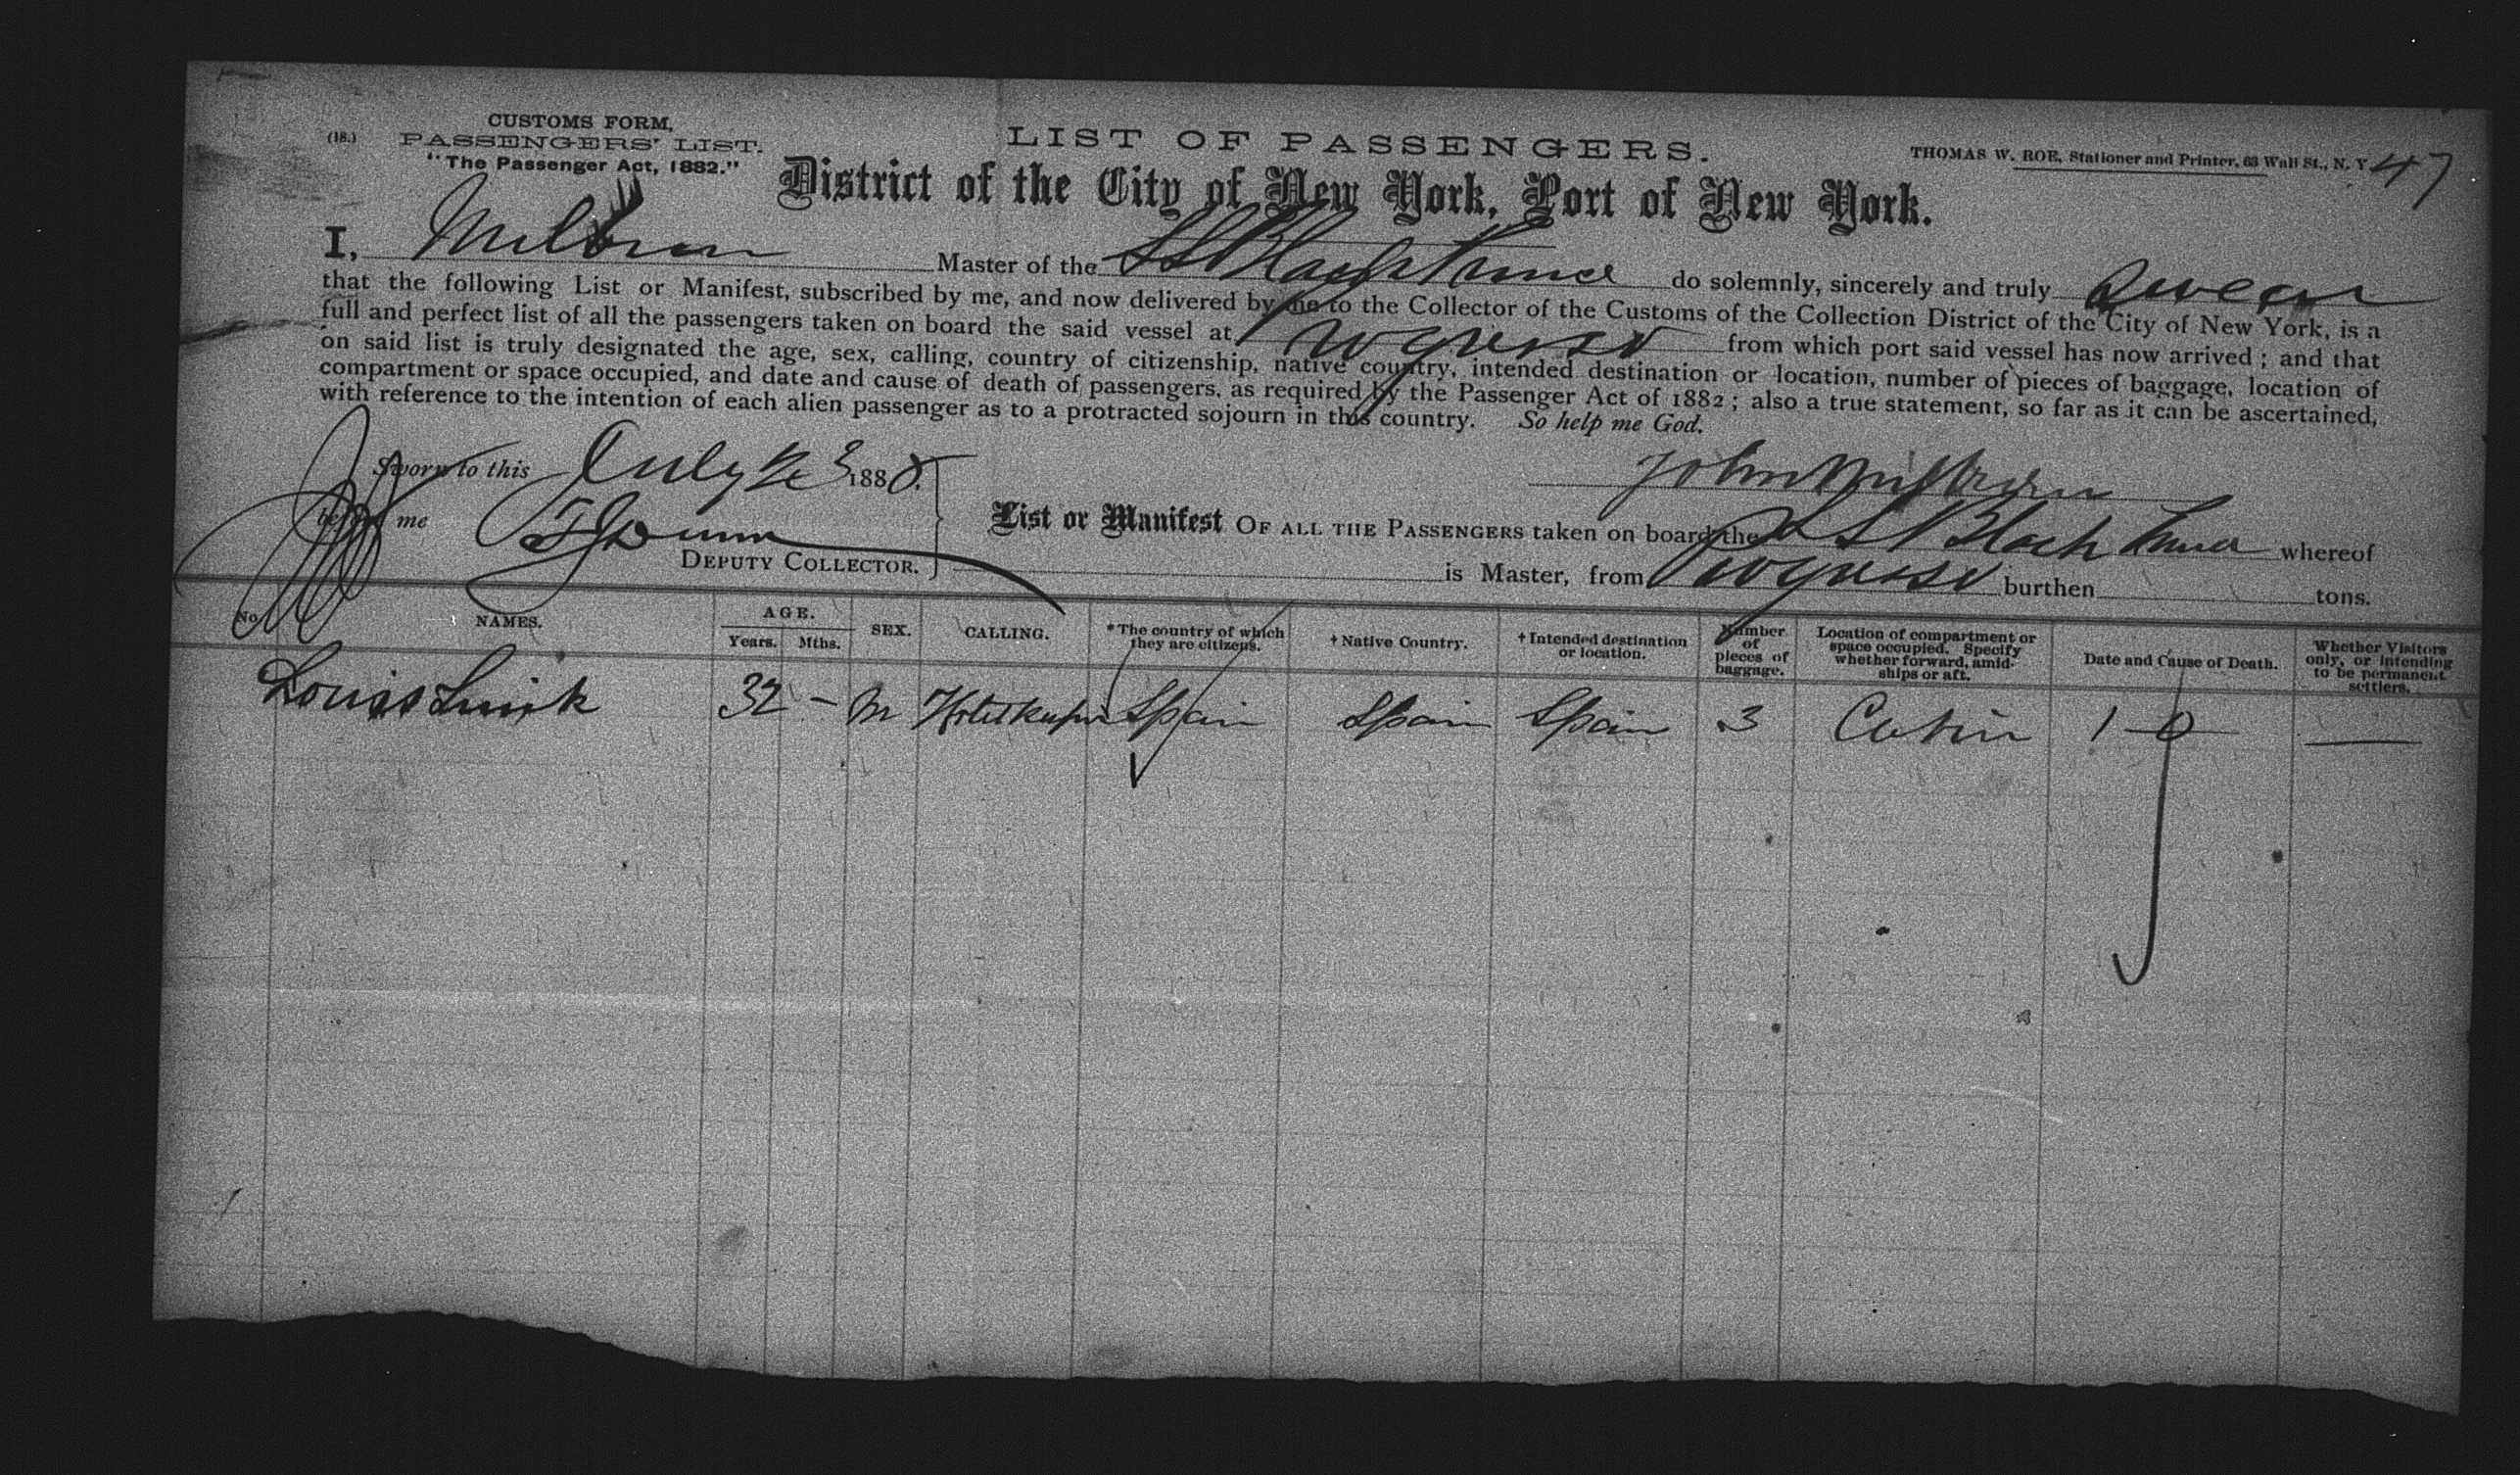 CUSTOMS FORM,
(18.) PASSENGERS' LIST.
"The Passenger Act, 1882."
LIST OF PASSENGERS.
THOMAS W. ROE, Stationer and Printer, 63 Wall St., N. Y.
47
District of the City of New York, Port of New York.
I, Milburn Master of the SS Black Prince do solemnly, sincerely and truly swear
that the following List or Manifest, subscribed by me, and now delivered by me to the Collector of the Customs of the Collection District of the City of New York, is a
full and perfect list of all the passengers taken on board the said vessel at Progreso from which port said vessel has now arrived; and that
on said list is truly designated the age, sex, calling, country of citizenship, native country, intended destination or location, number of pieces of baggage, location of
compartment or space occupied, and date and cause of death of passengers, as required by the Passenger Act of 1882; also a true statement, so far as it can be ascertained,
with reference to the intention of each alien passenger as to a protracted sojourn in this country. So help me God.
Sworn to this July 23 1888.
John Milburn
me
Dunn
DEPUTY COLLECTOR.
List or Manifest OF ALL THE PASSENGERS taken on board the SS Black Prince whereof
is Master, from Progreso burthen tons.
No. NAMES. AGE. Years. Mths. SEX. CALLING. *The country of which they are citizens. †Native Country. †Intended destination or location. Number of pieces of baggage. Location of compartment or space occupied. Specify whether forward, amidships or aft. Date and Cause of Death. Whether Visitors only, or intending to be permanent settlers.
Louis 32 – M Hotelkeeper Spain Spain Spain 3 Cabin 1 – 0 —